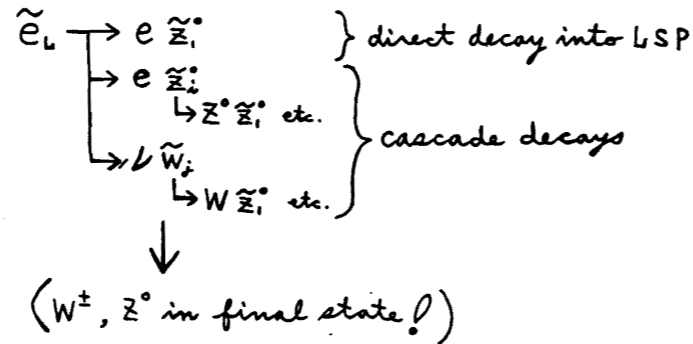 ẽ_L → e z̃₁° } direct decay into LSP
→ e z̃ᵢ°
↳ Z° z̃₁° etc.
} cascade decays
→ ν w̃ⱼ
↳ W z̃₁° etc.
↓
(W±, Z° in final state!)